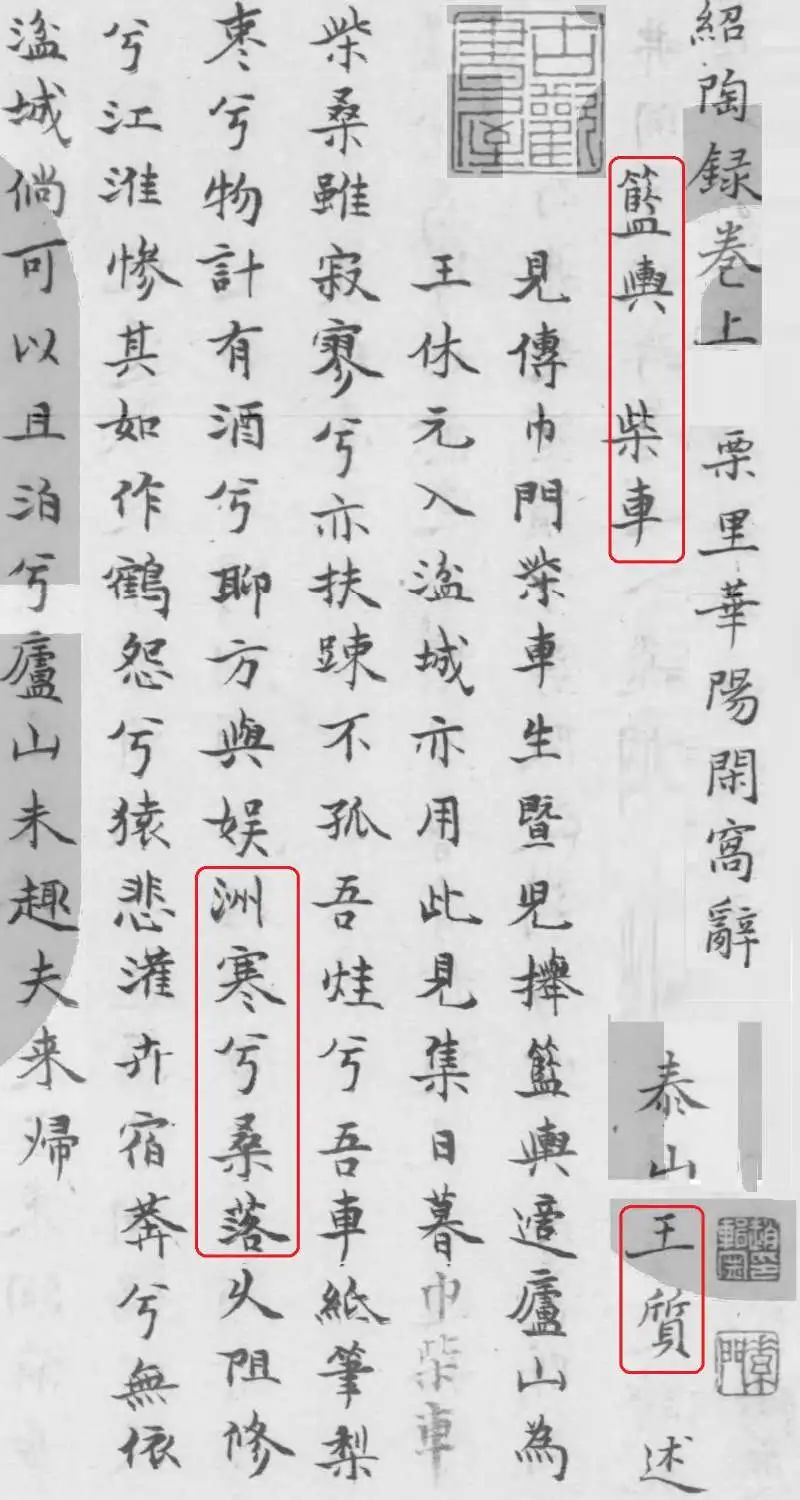 紹陶録卷上 栗里華陽閑窩辭
籃輿 柴車 泰山 王質 述
古歡書屋
趙印輯寧
素門
見傳巾門柴車生暨児攑籃輿適廬山為
王休元入湓城亦用此見集日暮巾柴車
柴桑雖寂寥兮亦扶踈不孤吾烓兮吾車紙筆梨
棗兮物計有酒兮聊方與娱洲寒兮桑落乆阻修
兮江淮慘其如作鶴怨兮猿悲灌卉宿莾兮無依
湓城倘可以且泊兮廬山未趣夫来歸